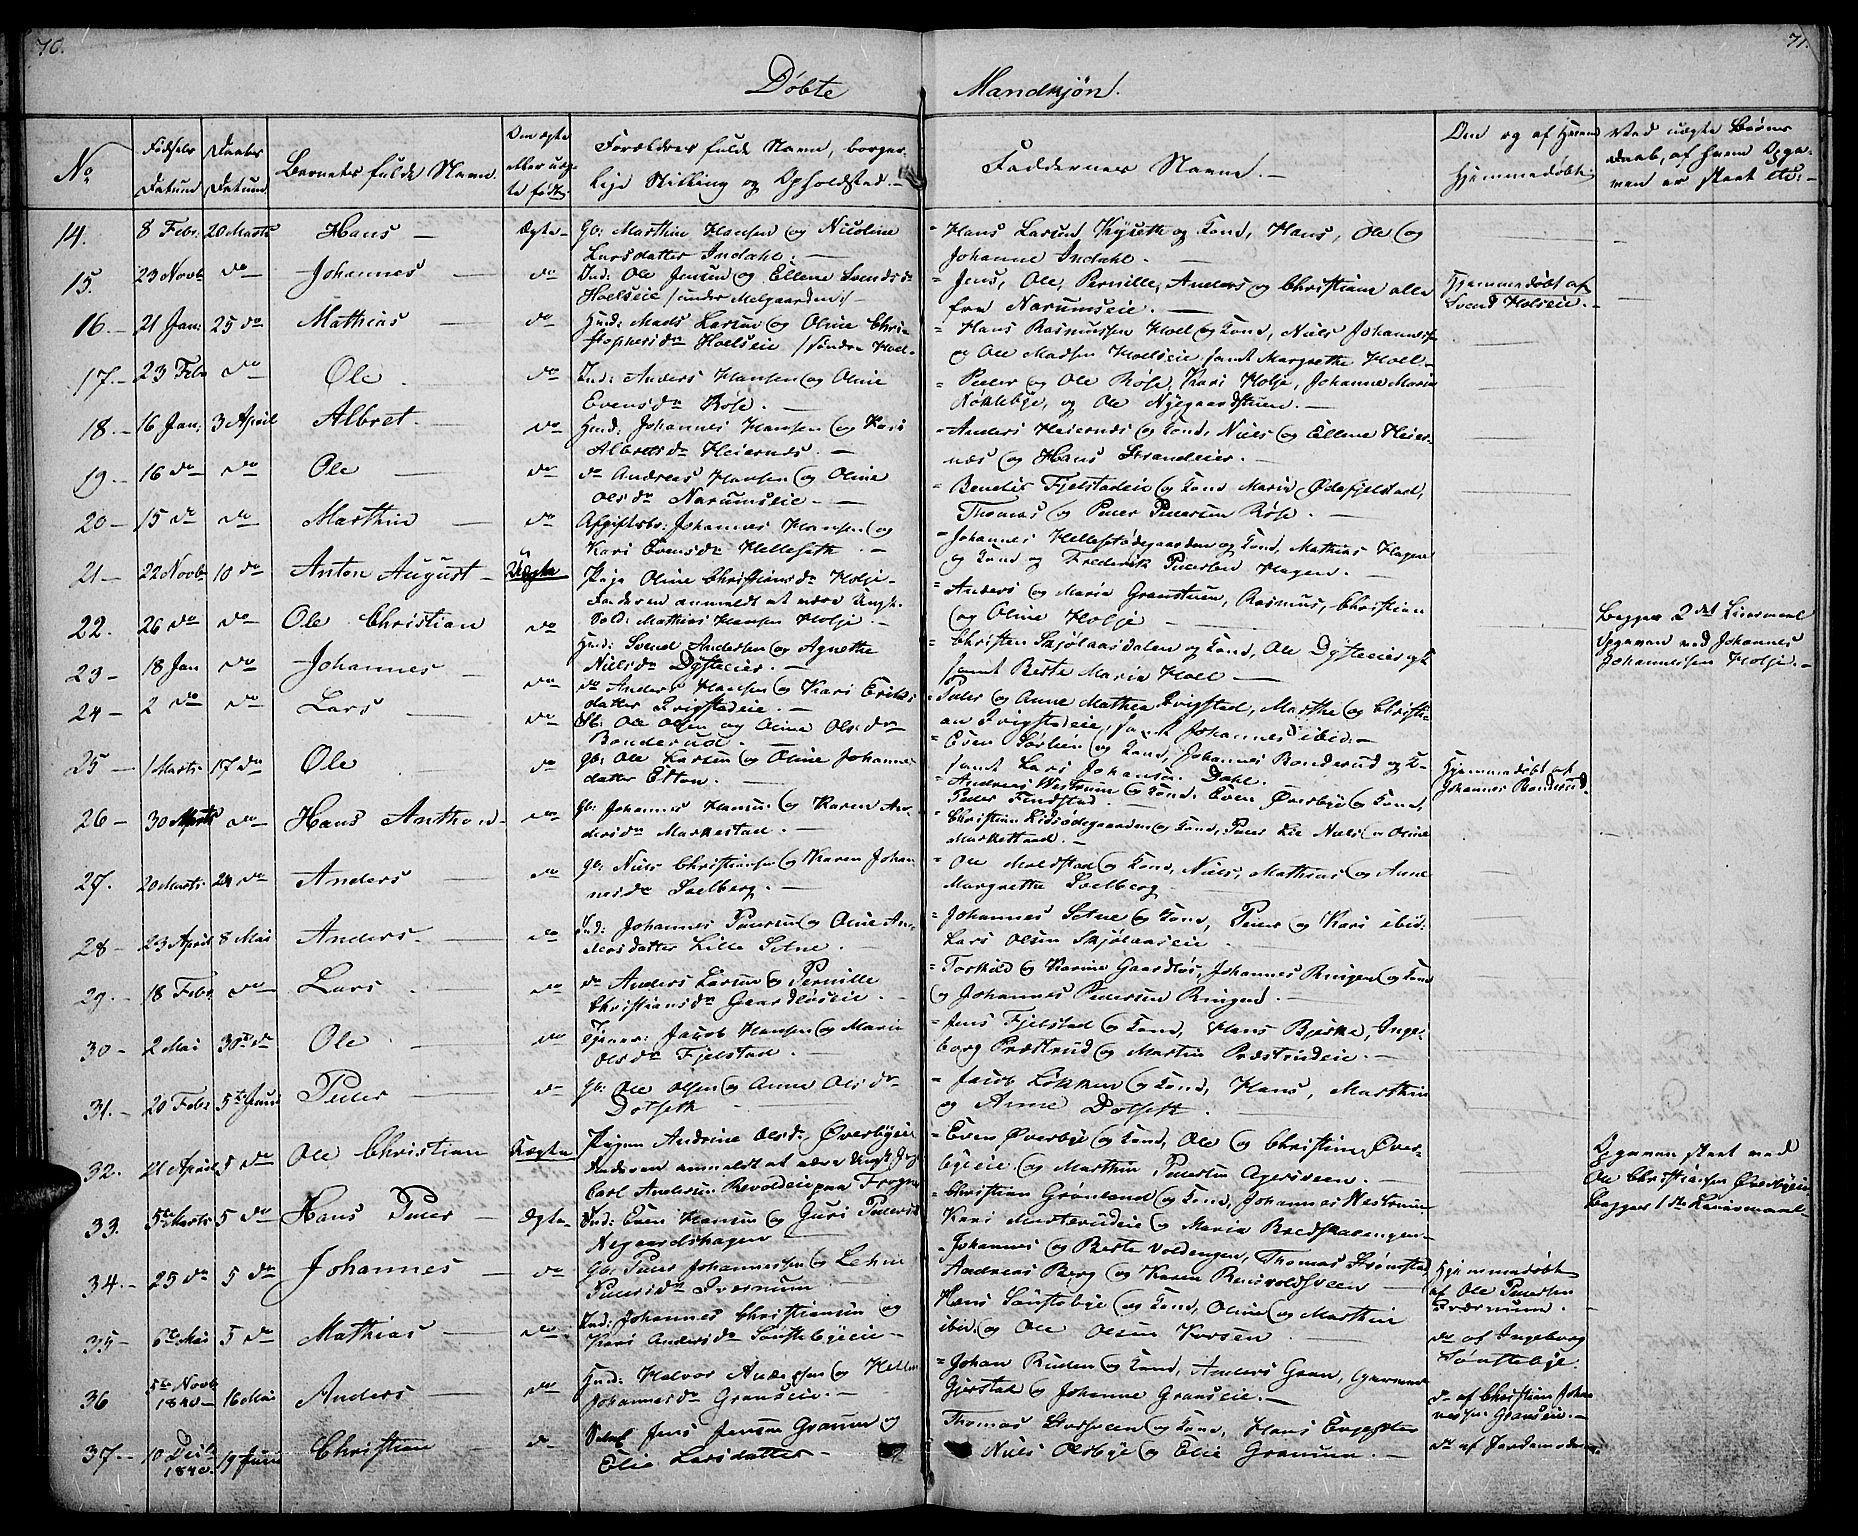 70.
71.
Døbte Mandkjøn.
No
Fødsels Datum
Daabs Datum
Barnets fulde Navn
Om ægte eller uægte født
Forældres fulde Navn, borgerlige Stilling og Opholdsted.
Faddernes Navne.
Om og af hvem Hjemmedøbt
Ved uægte Børns Daab, af hvem Opgaven er skeet etc.
14. 8 Febr. 20 Marts Hans Ægte Gb: Marthin Hansen og Nicoline Larsdatter Indahl.
Hans Larsen, og Kone, Hans, Ole og Johanne Indahl.
15. 23 Novb do Johannes do Ind: Ole Jensen og Ellene Svendsdr Hoelseie / under Melgaarden /
Jens, Ole, Pernille, Anders og Christiane alle fra Narumseie.
Hjemmedøbt af Svend Holseie.
16. 21 Jan: 25 do Mathias do Huud: Mads Larsen og Oline Christophersdr Hoelseie / søndre Hoel
Hans Rasmussen Hoel og Kone, Niels Johannes og Ole Madsen Hoelseie samt Margrethe Hoel
17. 23 Febr do Ole do Ind: Anders Hansen og Oline Evensdr Røse.
Peder og Ole Røse, Kari Holje, Johanne Maria Nøklebye, og Ole Nygaardstuen.
18. 16 Jan: 3 April Albret do Huud: Johannes Hansen og Kari Albretsdr Heiernes.
Anders Heiernes og Kone, Niels og Ellene Heiernæs og Hans Strandeier.
19. 16 do do Ole do do Andreas Hansen og Oline Olsdr Narumseie.
Fjelstadeie og Kone Maria Ødefjelstad,
20 15 do do Marthin do Afgiftsbr: Johannes Hansen og Kari Evensdr Helleseth.
Thomas og Peder Pedersen Røse.
Johannes og Kone, Mathias Hagen og Kone og Frederik Pedersen Hagen.
21 22 Novb 10 do Anton August Uægte Pige Oline Christiansdr Holje. Faderen anmeldt at være Ungk. Sold: Mathias Hansen Holje.
Anders og Maria Granstuen, Rasmus, Christian og Oline Holje
Begges 2det Leiermaal Opgaven ved Johannes Johannesen Holje.
22. 26 do do Ole Christian do Huud: Svend Andersen og Agnethe Nielsdr Dysteeier.
Christen Skjølaasdalen og Kone, Ole Dysteeier og samt Berte Maria Hoel
23 18 Jan do Johannes do do Anders Hansen og Kari Eriksdatter Trigstadeie.
Peder og Anne Mathea Trigstad, Marthe og Christian Trigstadeie, samt Johannes ibid:
24 2 do do Lars do Ole Olsen og Oline Olsdr Bonderud.
Even og Kone, Johannes Bonderud og K. samt Lars Johansen Dahl.
25 1 Marts 17 do Ole do Gb: Ole Larsen og Oline Johannesdatter Elton.
Andreas Westrum og Kone, Even Øverbye og Kone, Peder Findstad.
Hjemmedøbt af Johannes Bonderud.
26 30 Marts do Hans Anthon do Gb: Johannes Hansen og Karen Andersdr Markestad.
Christian og Kone, Peder Lie Niels og Oline Markestad.
27. 20 Marts 24 do Anders do Gb: Niels Christiansen og Karen Johannesdr Soelberg.
Ole Moldstad og Kone, Niels, Mathias og Anne Margrethe Soelberg
28 23 April 8 Mai Anders do Ind: Johannes Pedersen og Oline Andersdatter Lille Setne.
Johannes Setne og Kone, Peder og Kari ibid: Lars Olsen Skjølaaseie
29. 18 Febr do Lars do do Anders Larsen og Pernille Christiansdr Gaardløseie.
Torkild og Karine Gaardløs, Johannes Ringen og Kone og Johannes Pedersen Ringen.
30 2 Mai 30te do Ole do Tjener: Jacob Hansen og Maria Olsdr Fjelstad.
Jens Fjelstad og Kone, Hans Bjerke, Ingeborg Præstrud og Martin Præstrudeie.
31. 20 Febr 5te Juni Peder do Gb: Ole Olsen og Anne Olsdr Dolseth
Jacob Løkken og Kone, Hans, Marthin og Anne Dolseth.
32. 21 April 5 do Ole Christian Uægte Pigen Andrine Olsdr Øverbyeie Faderen anmeldt at være Ungk. Carl Andersen Revoldeie paa Frogner
Even Øverbye og Kone, Ole og Christine Øverbyeeie og Marthin Pedersen
Opgaven skeet ved Ole Christiansen Øverbyeie Begges 1ste Leiermaal
33. 5te Marts 5 do Hans Peder Ægte Ind: Even Hansen og Guri Pedersdr Aegaardshagen
Christian Grønland og Kone, Johannes Kari og Maria
34. 25 do 5 do Johannes do Gb: Peder Johannessen og Lehne Pedersdr
Johannes og Berte Voldengen, Thomas Strømstad, Andreas Berg og Karen
Hjemmedøbt af Ole Pedersen
35 6te Mai 5 do Mathias do Ind: Johannes Christiansen og Kari Andersdr Sønstebyeie
Hans Sønstebye og Kone, Oline og Marthin ibid. og Ole Olsen Korsen.
do af Ingeborg Sønstebye.
36 5te Novb 1840 16 Mai Anders do Huud: Halvor Andersen og Johannesdr Granseie.
Johan Ruden og Kone, Anders Gran, Gjerstad og Johanne Granseie.
do af Christian Johannessen Granseie.
37. 10 Decb 1840. 19 Juni Christian do Jens Jensen Granum og Elie Larsdatter
Thomas og Kone, Hans Niels Olsbye og Elie Granum
do af Jordemoderen